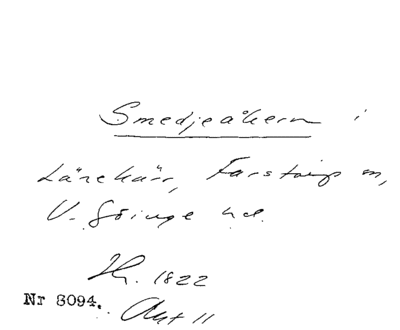 Smedjeåkern i
Lärkekärr, Farstorps sn,
V. Göinge hd.
Jh. 1822
Nr 8094. Akt 11